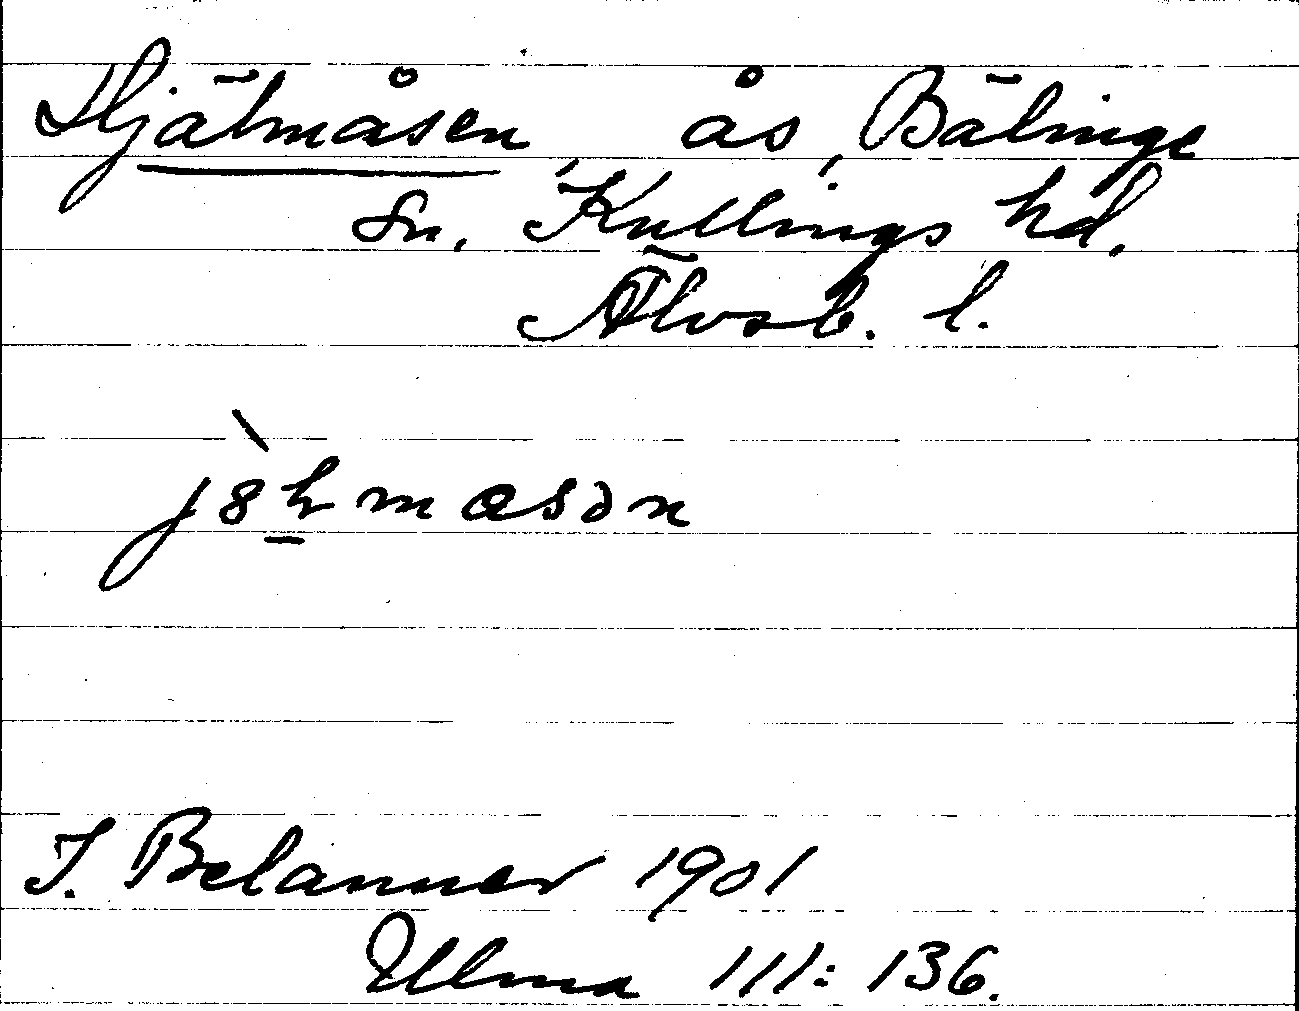 Hjälmåsen, ås, Bälinge
sn, Kullings hd.
Älvsb. l.
J. Belanner 1901
Ulma 111: 136.